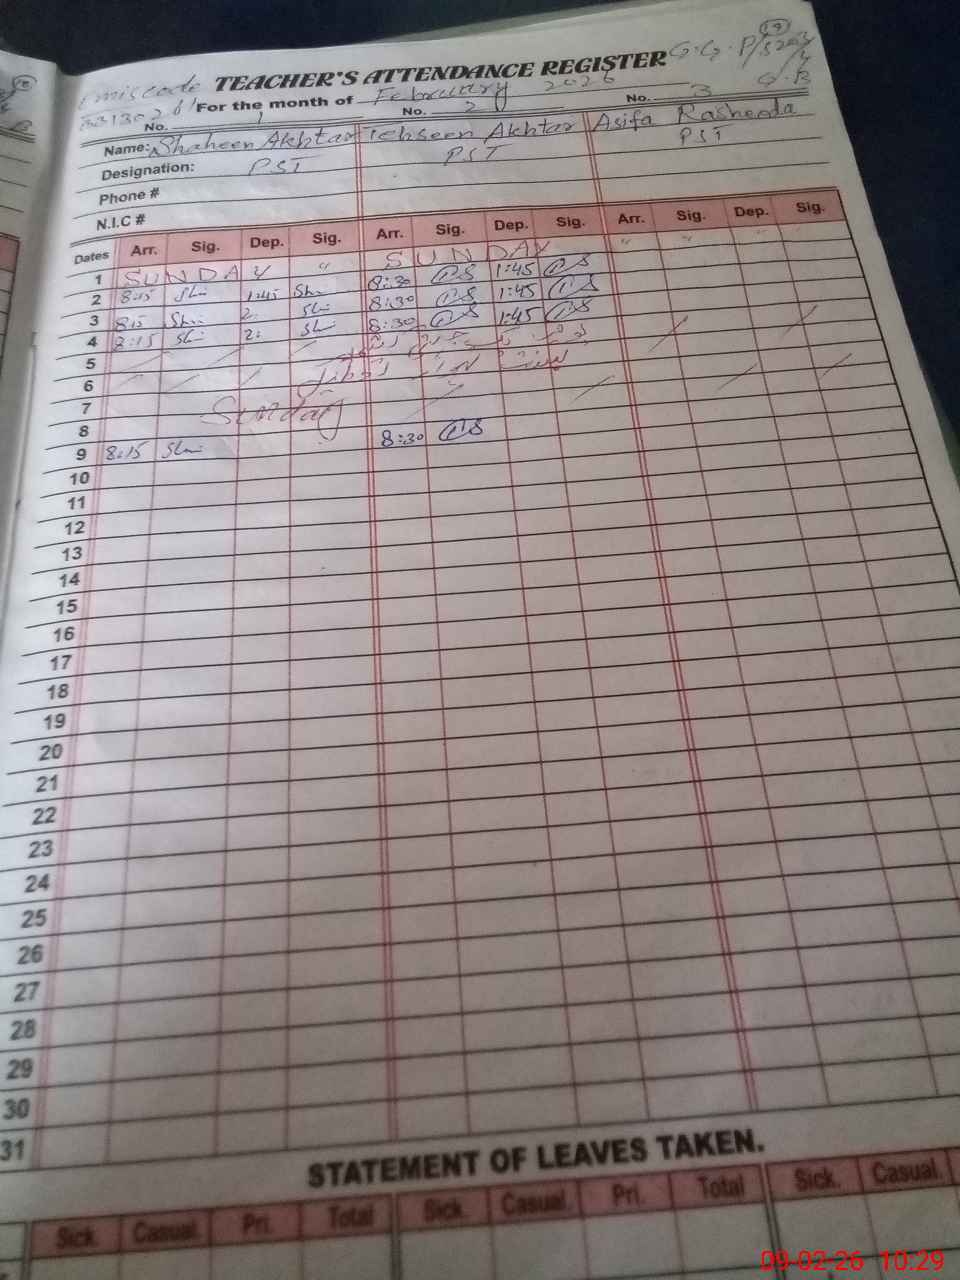 19
Emiscode TEACHER'S ATTENDANCE REGISTER G.G.P/S 203/
For the month of February 2026 G.B
No. 1 No. 2 No. 3
Name: Shaheen Akhtar Tehseen Akhtar Asifa Rasheeda
Designation: PST PST PST
Phone #
N.I.C #
Dates Arr. Sig. Dep. Sig. Arr. Sig. Dep. Sig. Arr. Sig. Dep. Sig.
1 SUNDAY " SUNDAY " " " "
2 8:15 1:45 8:30 1:45
3 8:15 2: 8:30 1:45
4 8:15 2: 8:30 1:45
5
6
7
8 Sunday
9 8:15 8:30
10
11
12
13
14
15
16
17
18
19
20
21
22
23
24
25
26
27
28
29
30
31
STATEMENT OF LEAVES TAKEN.
Sick. Casual. Pri. Total Sick. Casual. Pri. Total Sick. Casual.
09-02-26 10:29